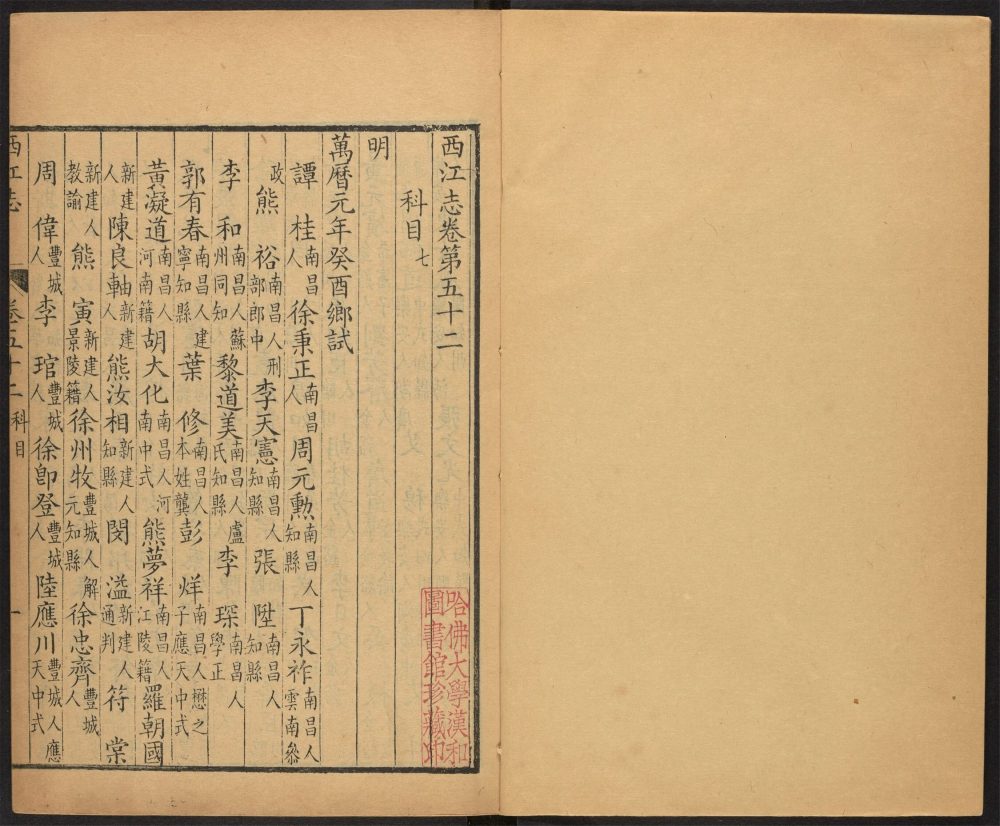 西江志卷第五十二
科目七
明
萬曆元年癸酉鄉試
譚桂南昌人徐秉正南昌人周元勲南昌人知縣丁永祚南昌人雲南參
政熊裕南昌人刑部郎中李天憲南昌人知縣張陞南昌人知縣
李和南昌人蘇州同知黎道美南昌人盧氏知縣李琛南昌人學正
郭有春南昌人建寧知縣葉修南昌人本姓龔彭烊南昌人懋之子應天中式
黃凝道南昌人河南籍胡大化南昌人河南中式熊夢祥南昌人江陵籍羅朝國
新建人陳良軸新建人熊汝相新建人知縣閔溢新建人通判符棠
新建人教諭熊寅新建人景陵籍徐州牧豐城人解元知縣徐忠齊豐城人
周偉豐城人李琯豐城人徐卽登豐城人陸應川豐城人應天中式
西江志
卷五十二科目
一
哈佛大學漢和
圖書館珍藏印